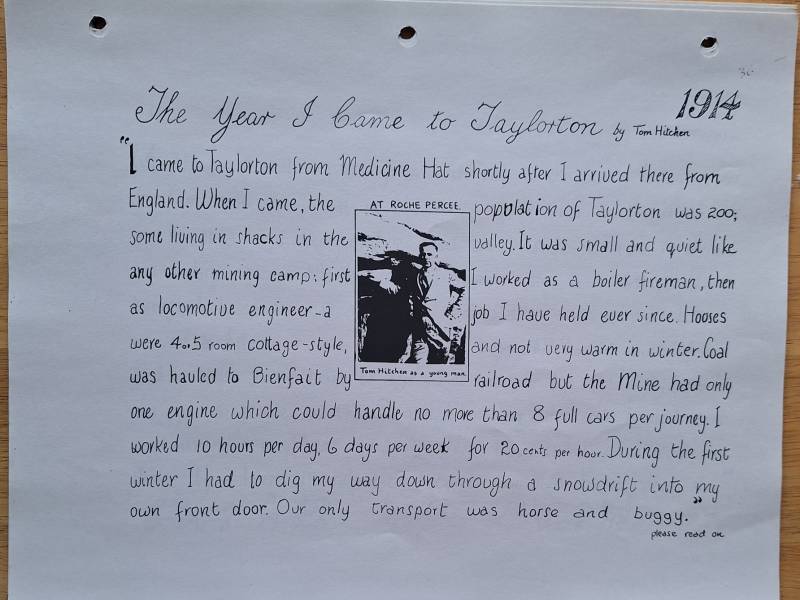 1914
The Year I Came to Taylorton by Tom Hitchen
"I came to Taylorton from Medicine Hat shortly after I arrived there from
England. When I came, the population of Taylorton was 200;
some living in shacks in the valley. It was small and quiet like
any other mining camp: first I worked as a boiler fireman, then
as locomotive engineer - a job I have held ever since. Houses
were 4 or 5 room cottage-style, and not very warm in winter. Coal
was hauled to Bienfait by railroad but the Mine had only
one engine which could handle no more than 8 full cars per journey. I
worked 10 hours per day, 6 days per week for 20 cents per hour. During the first
winter I had to dig my way down through a snowdrift into my
own front door. Our only transport was horse and buggy."
please read on
AT ROCHE PERCEE.
Tom Hitchen as a young man.